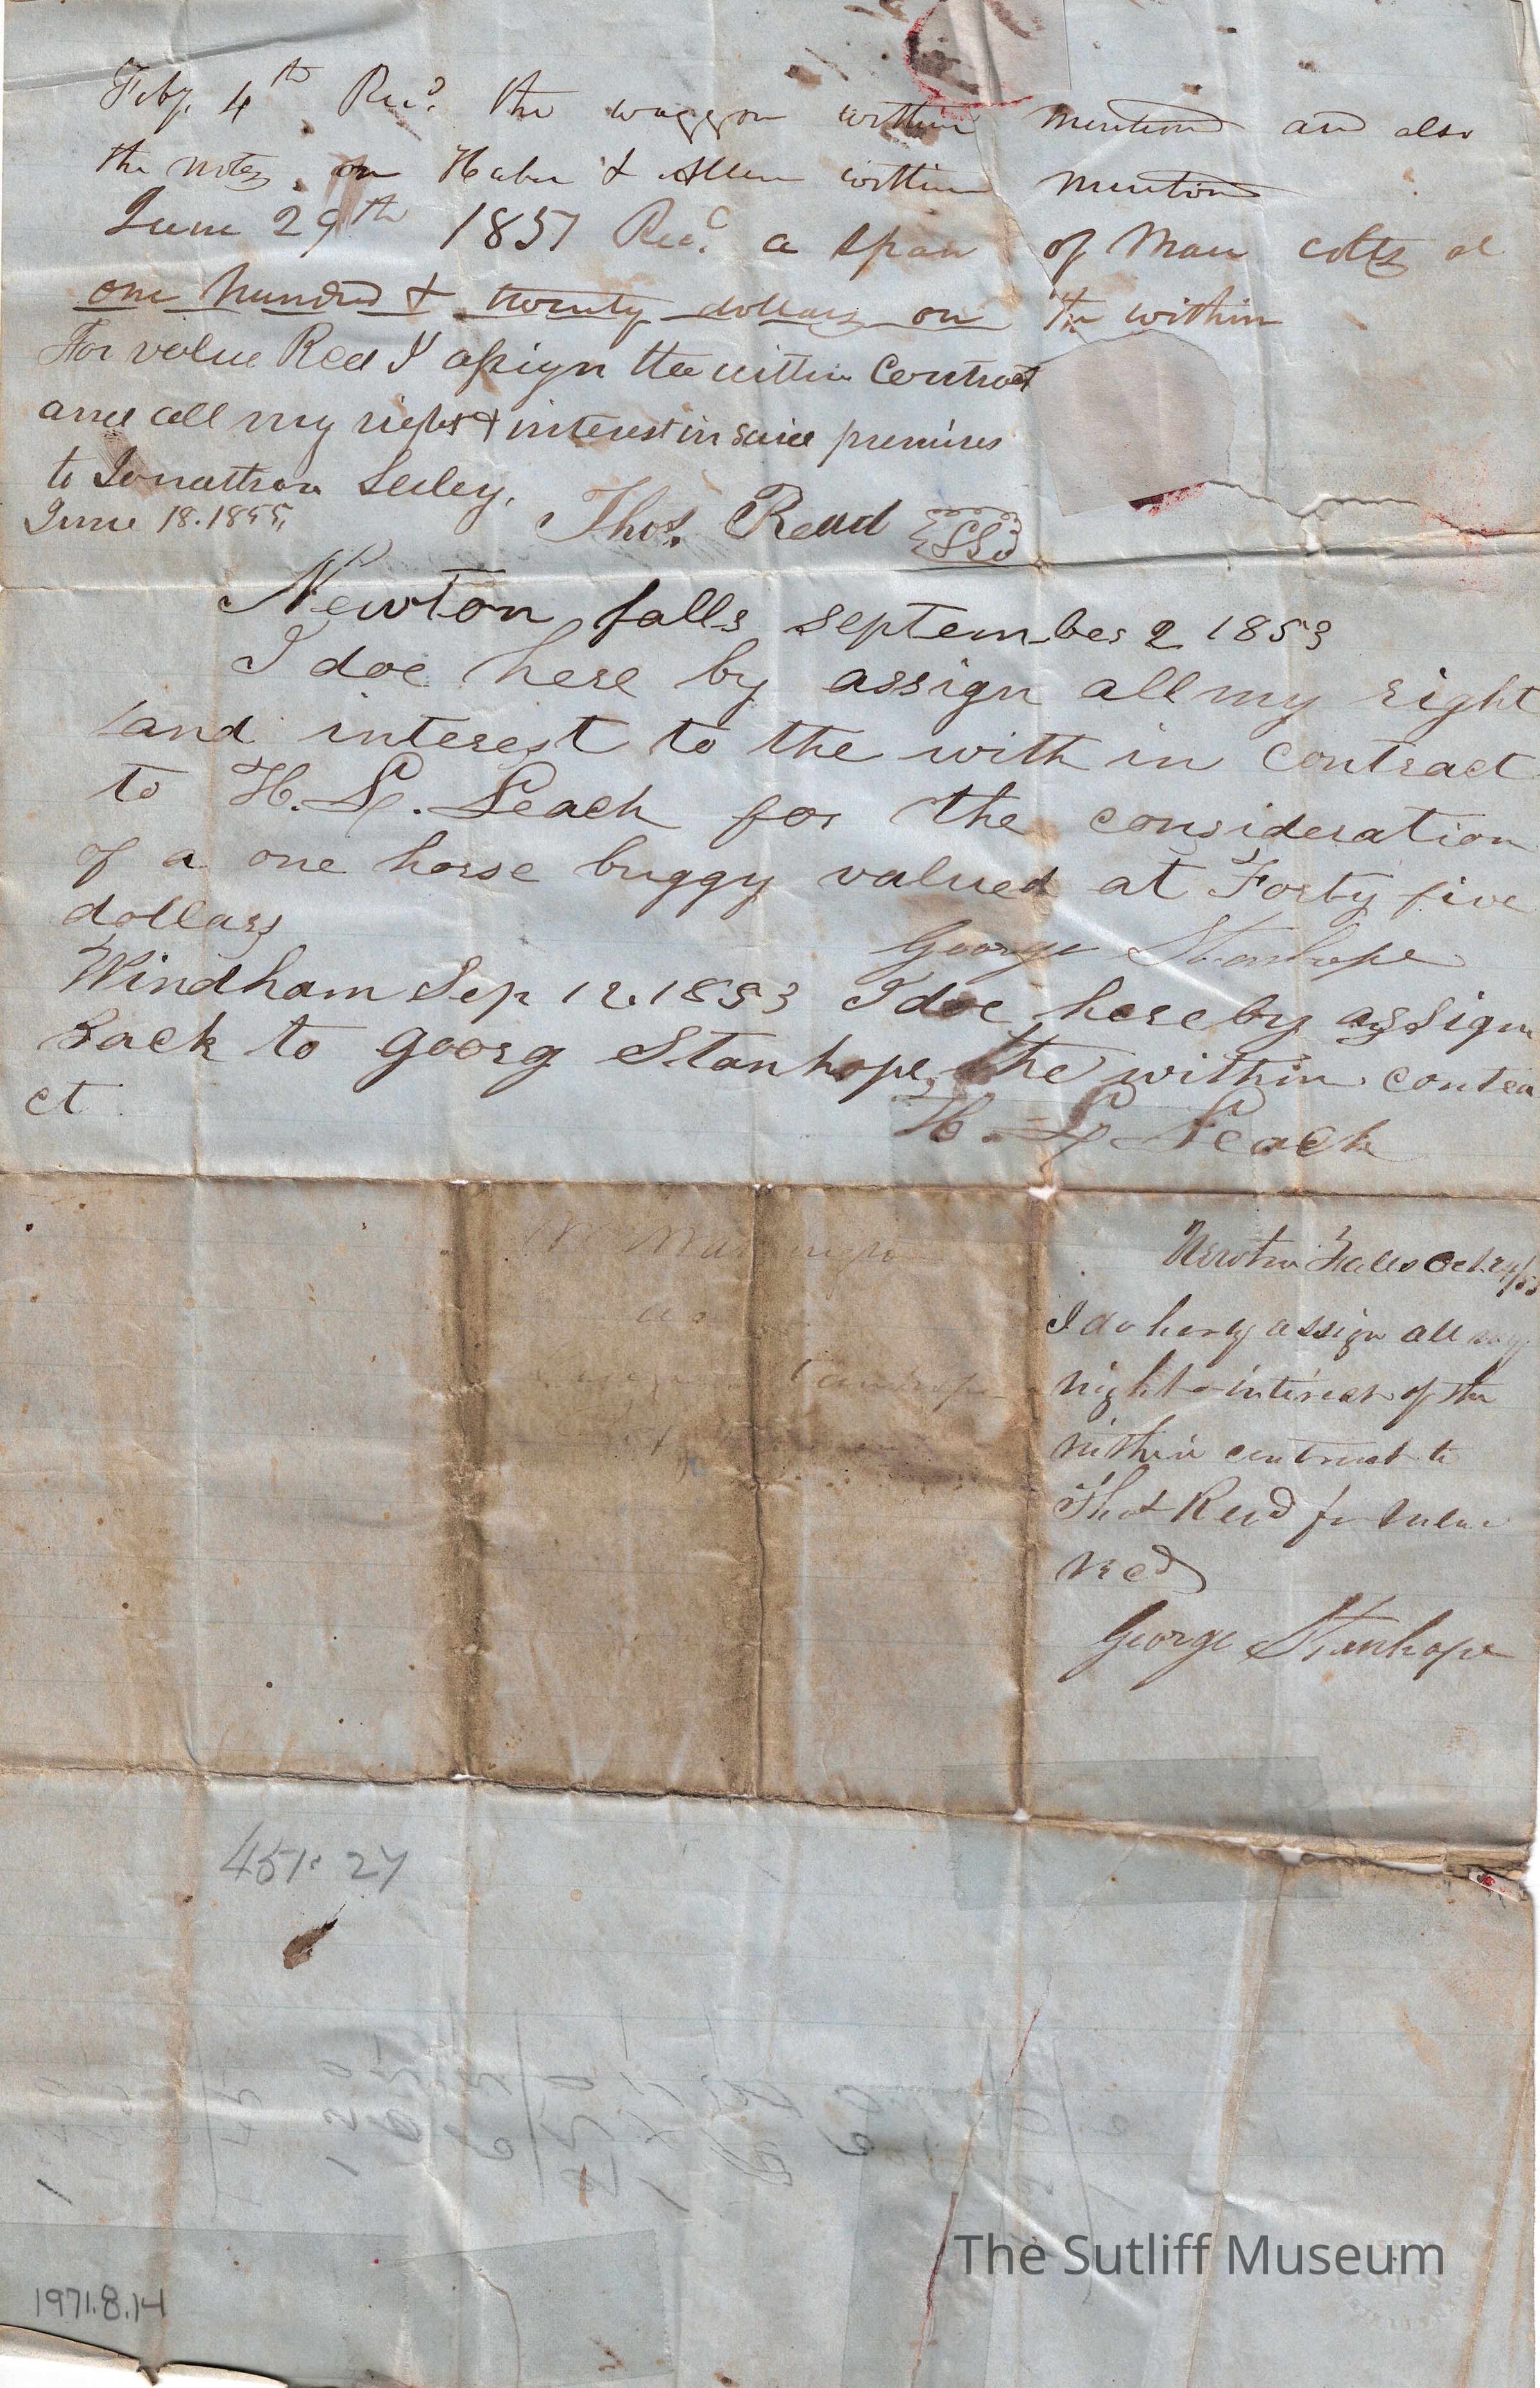 Feby. 4th Recd. the waggon within mentiond and also
the notes on & Allen within mentiond
June 29th 1851 Recd. a span of Mare colts at
one hundred & twenty dollars on the within
For value Recd I assign the within Contract
and all my right & interest in said premises
to Jonathan Seeley.
June 18. 1855. Thos. Read
Newton falls september 2 1853
I doe here by assign all my right
and interest to the with in contract
to H. L. Leach for the consideration
of a one horse buggy valued at Forty five
dollars
George Stanhope
Windham Sep 12. 1853 I doe hereby assign
back to Goorg Stanhope the within contra
ct
H. L Leach
Newton Falls Oct 24/53
I do herby assign all my
right & interest of the
within contract to
Thos Read for value
recd
George Stanhope
451.27
The Sutliff Museum
1971.8.14